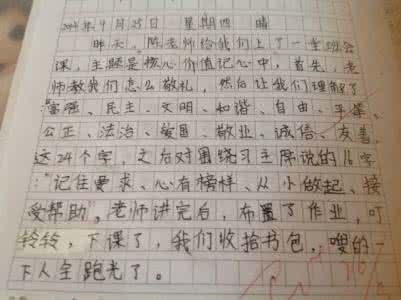 2014年9月25日 星期四 晴
昨天,陈老师给我们上了一堂班会
课,主题是核心价值记心中,首先,老
师教我们怎么敬礼,然后让我们理解了
"富强、民主、文明、和谐、自由、平等、
公正、法治、爱国、敬业、诚信、友善,
这24个字,之后对围绕习主席说的16字
:"记住要求、心有榜样、从小做起、接
受帮助"。老师讲完后,布置了作业,叮
铃铃,下课了,我们收拾书包,嗖的一
下人全跑光了。